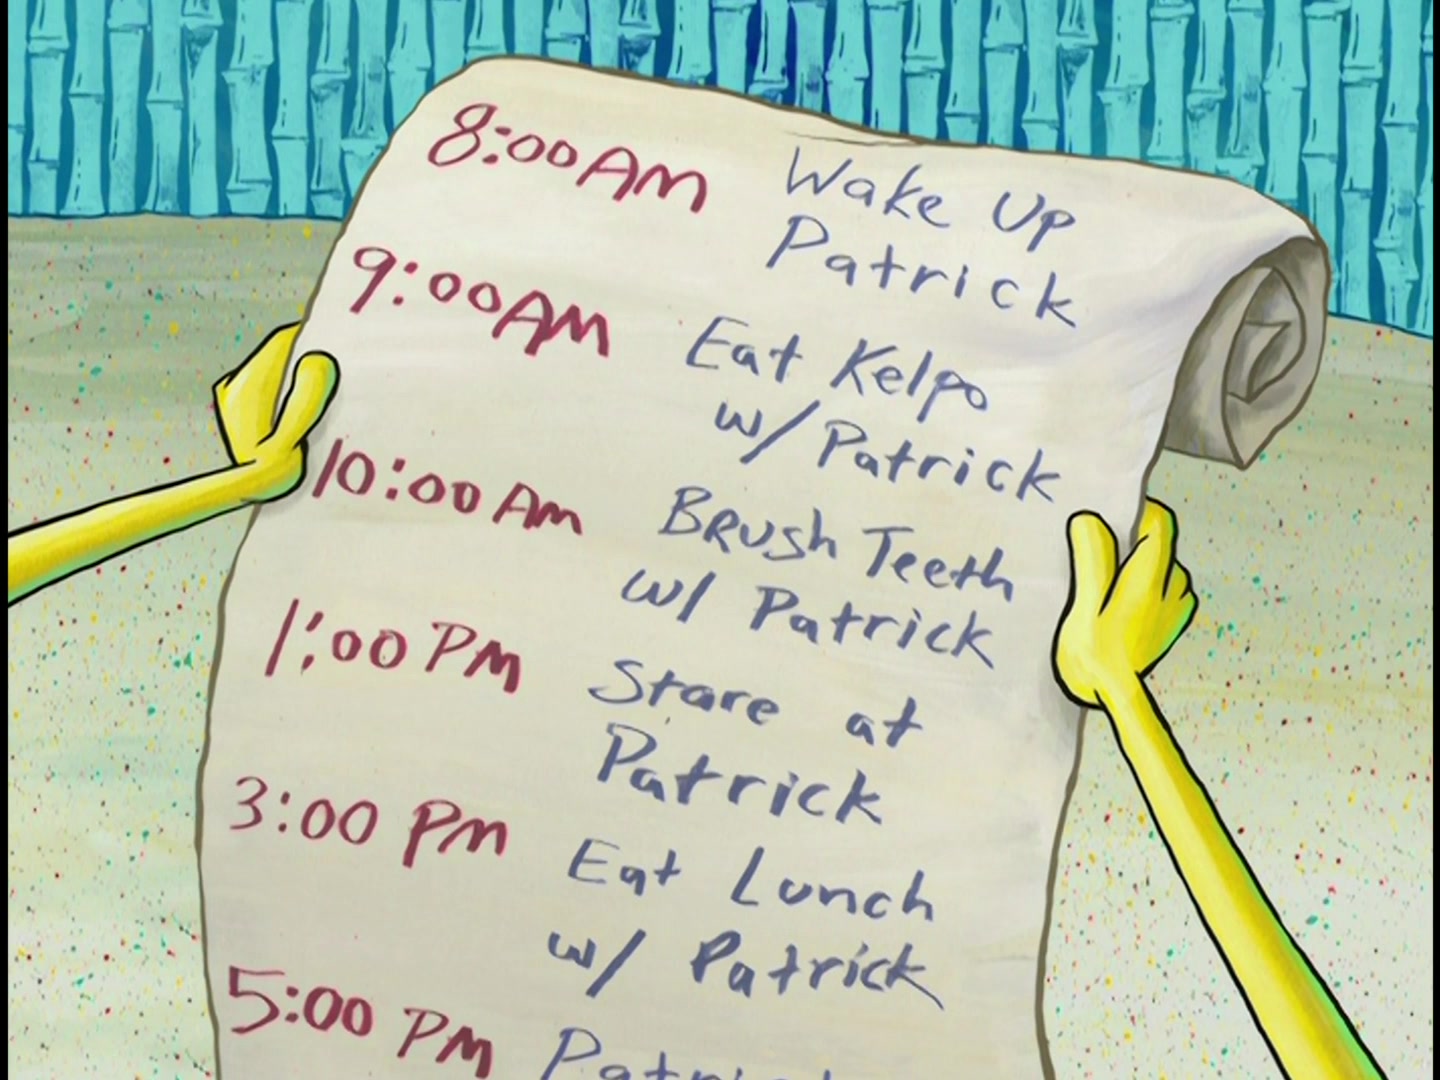 8:00 AM Wake Up
Patrick
9:00 AM Eat Kelpo
w/ Patrick
10:00 Am Brush Teeth
w/ Patrick
1:00 PM Stare at
Patrick
3:00 PM Eat Lunch
w/ Patrick
5:00 PM Patrick